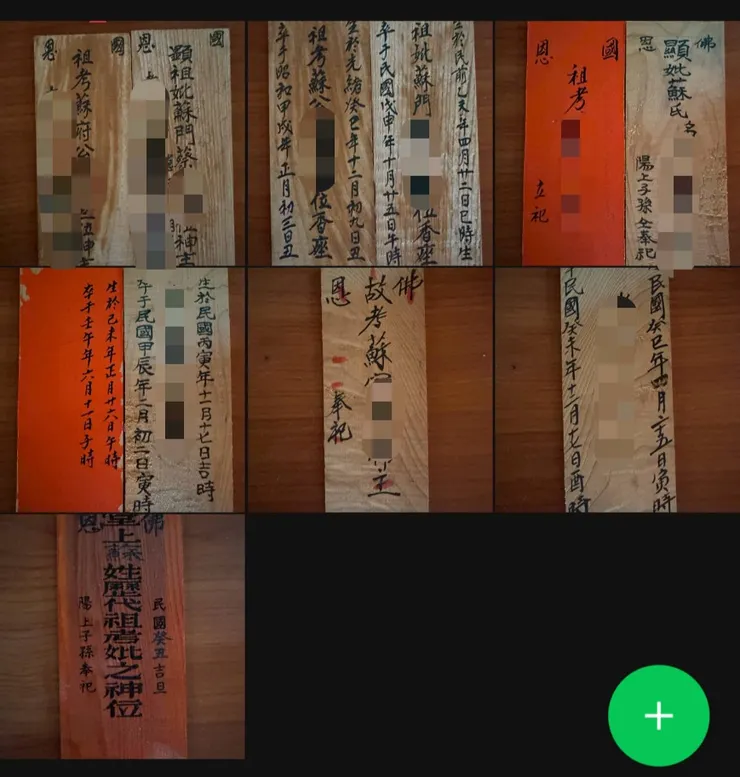 國
恩
顯祖妣蘇門蔡
神主
國
恩
祖考蘇府公
神主
生於民前乙未年四月廿二日巳時生
祖妣蘇門
位香座
卒于民國戊申年十月廿五日午時
生於光緒癸巳年十二月初九日丑
祖考蘇公
位香座
卒于昭和甲戌年正月初三日丑
佛
恩
顯妣蘇氏名
陽上子孫仝奉祀
國
恩
祖考
立祀
生於民國丙寅年十一月十七日吉時
卒于民國甲辰年二月初二日寅時
生於己未年正月廿六日午時
卒于壬午年六月十一日子時
佛
恩
故考蘇
主
奉祀
民國癸巳年四月
五日寅時
民國癸未年十二月十七日酉時
佛
恩
堂上蘇姓歷代祖考妣之神位
民國癸丑吉旦
陽上子孫奉祀